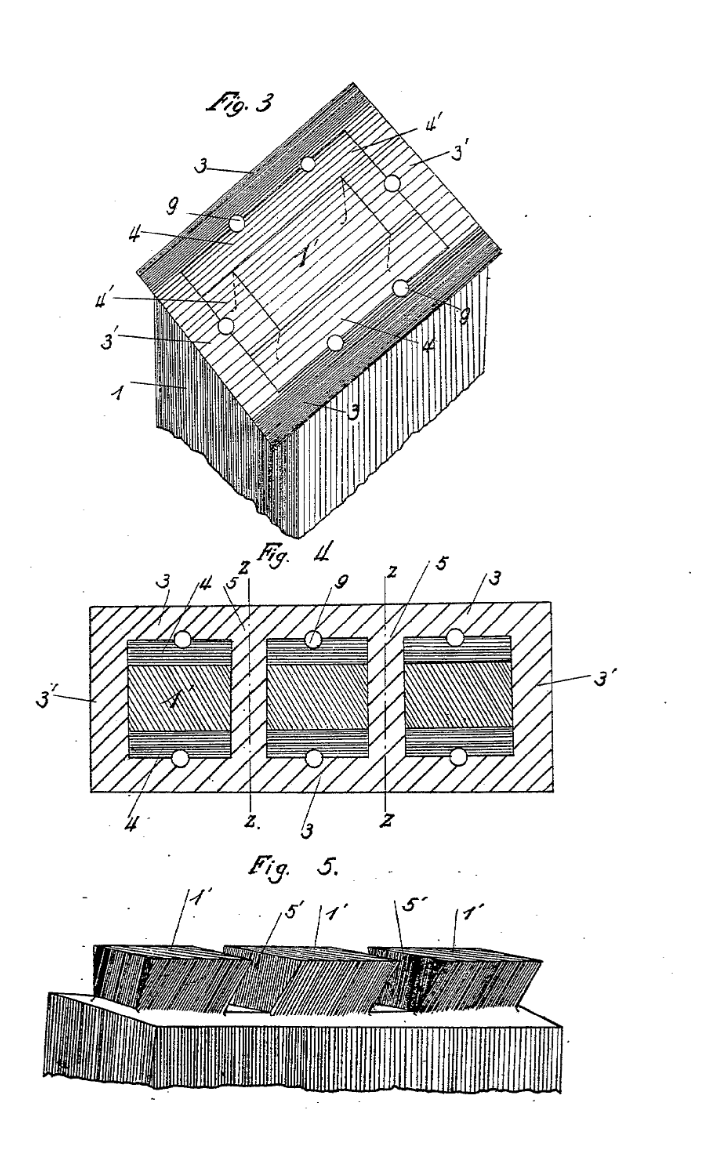 Fig. 3
4'
3'
3
9
4
1'
4'
3'
9
4
1
3
Fig. 4
z
z
3
4
5
9
5
3
3'
1'
3'
4
z.
3
z
Fig. 5.
1'
5'
1'
5'
1'